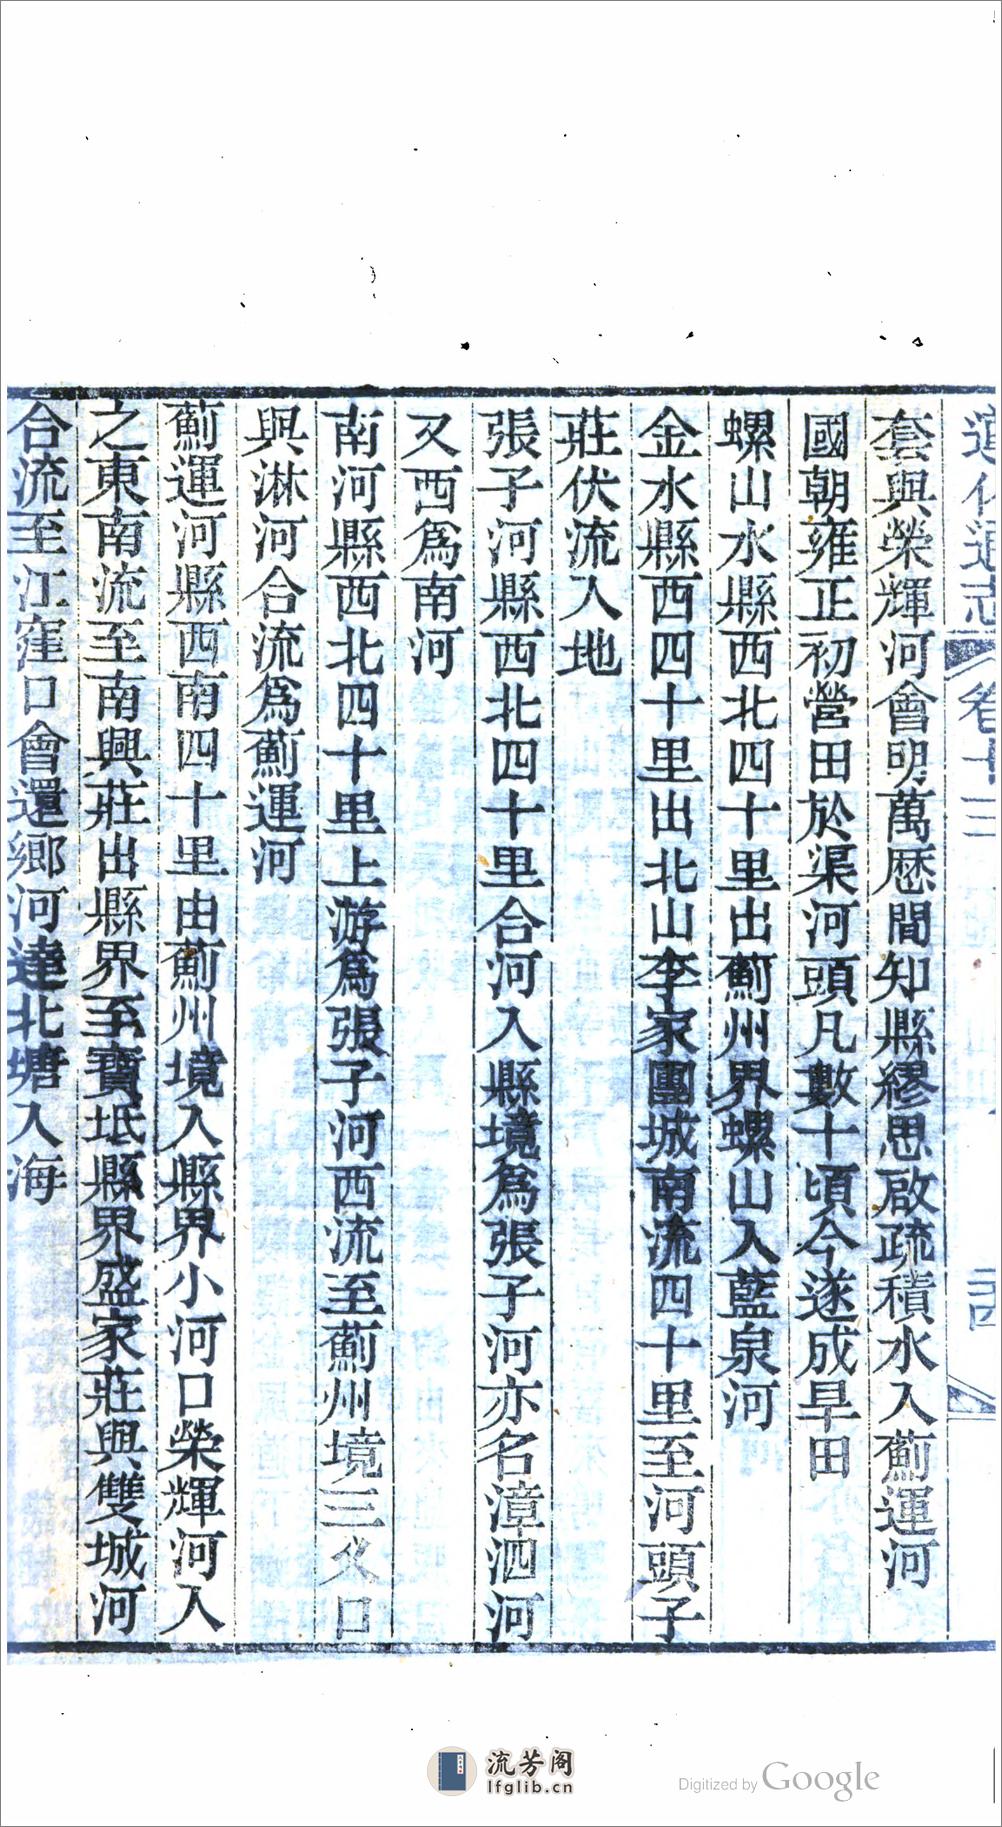 遵化通志 卷十三 二四
套與榮輝河會明萬歷間知縣繆思啟疏積水入薊運河
國朝雍正初營田於渠河頭凡數十頃今遂成旱田
螺山水縣西北四十里出薊州界螺山入藍泉河
金水縣西四十里出北山李家團城南流四十里至河頭子
莊伏流入地
張子河縣西北四十里合河入縣境爲張子河亦名漳泗河
又西爲南河
南河縣西北四十里上游爲張子河西流至薊州境三义口
與淋河合流爲薊運河
薊運河縣西南四十里由薊州境入縣界小河口榮輝河入
之東南流至南興莊出縣界至寶坻縣界盛家莊與雙城河
合流至江窪口會還鄉河達北塘入海
流芳阁
lfglib.cn
Digitized by Google